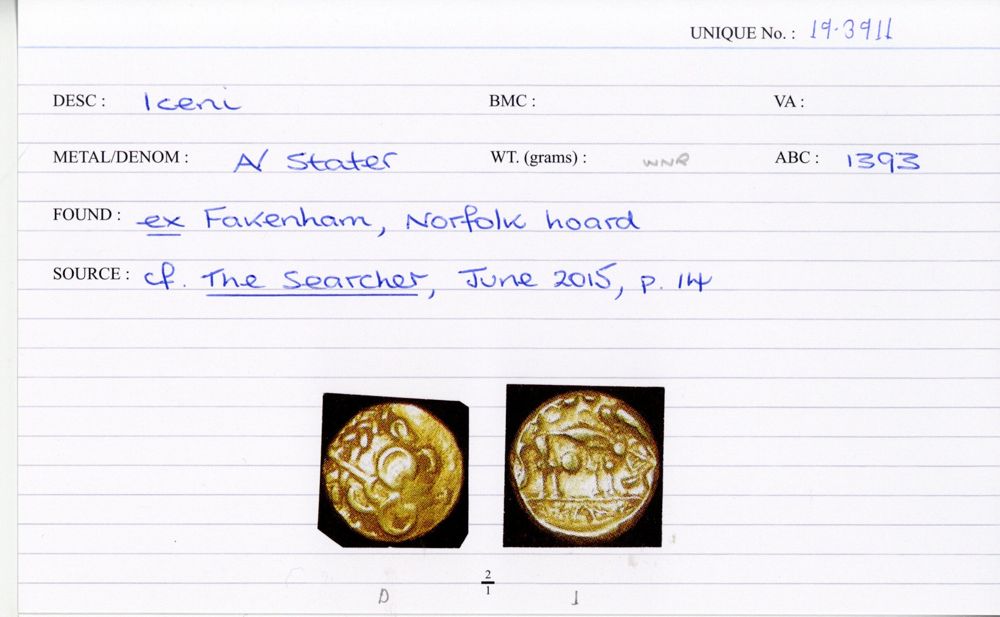 UNIQUE No. : 19.3911
DESC : Iceni BMC : VA :
METAL/DENOM : A/ Stater WT. (grams) : WNR ABC : 1393
FOUND : ex Fakenham, Norfolk hoard
SOURCE : cf. The Searcher, June 2015, p. 14
2
1
D 1